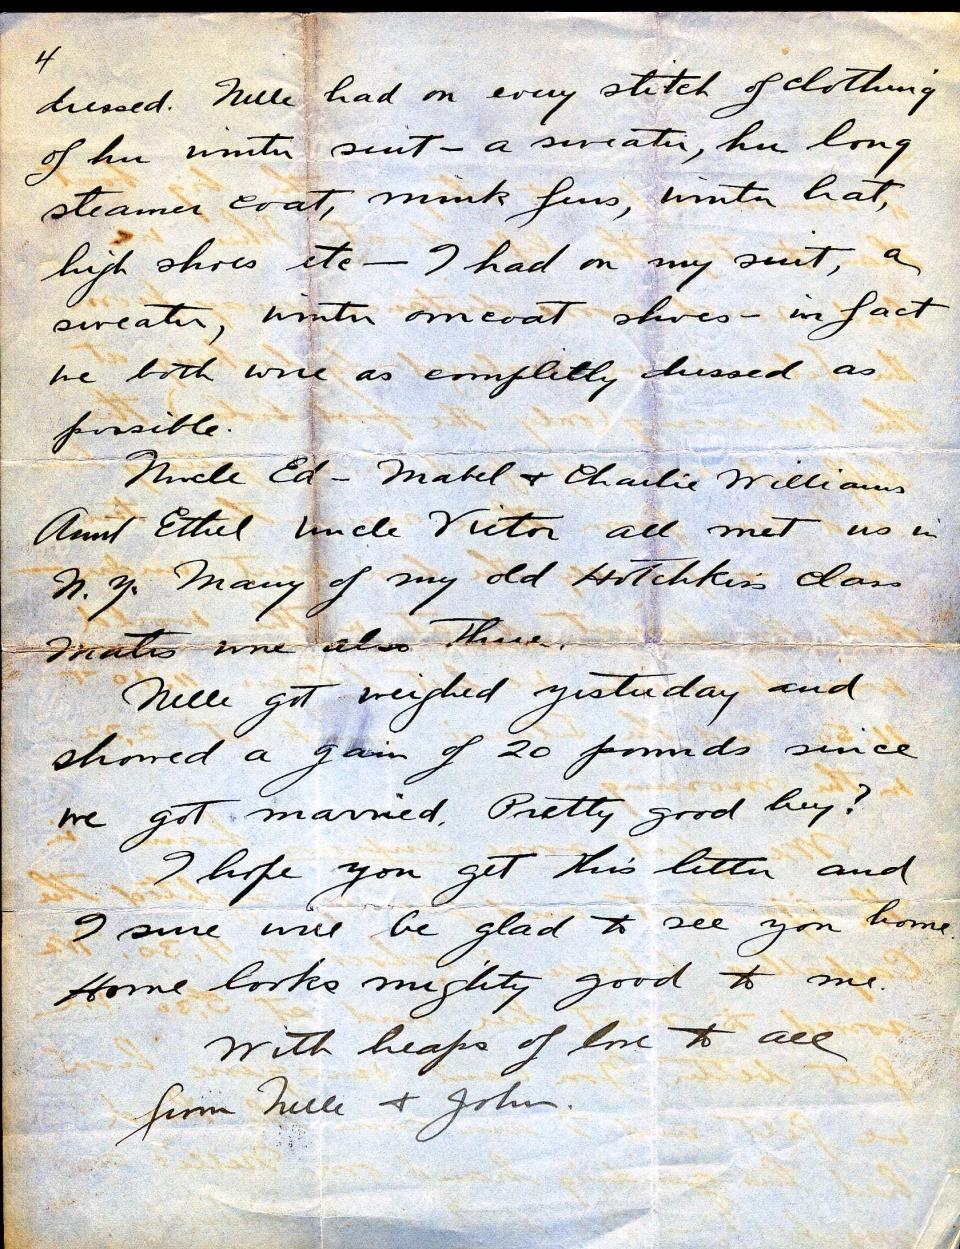 4
dressed. Nelle had on every stitch of clothing
of her winter suit - a sweater, her long
steamer coat, mink furs, winter hat,
high shoes etc — I had on my suit, a
sweater, winter overcoat shoes - in fact
we both were as completly dressed as
possible.
Uncle Ed - Mabel + Charlie Williams
Aunt Ethel Uncle Victor all met us in
N.Y. Many of my old Hotchkiss class
mates were also there.
Nelle got weighed yesterday and
showed a gain of 20 pounds since
we got married. Pretty good hey?
I hope you get this letter and
I sure will be glad to see you home.
Home looks mighty good to me.
With heaps of love to all
from Nelle + John.